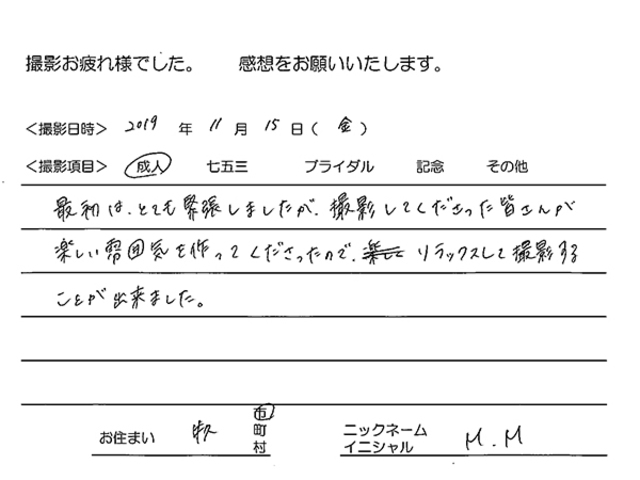 撮影お疲れ様でした。 感想をお願いいたします。
＜撮影日時＞ 2019 年 11 月 15 日（ 金 ）
＜撮影項目＞ 成人 七五三 ブライダル 記念 その他
最初は、とても緊張しましたが、撮影してくださった皆さんが
楽しい雰囲気を作ってくださったので、リラックスして撮影する
ことが出来ました。
お住まい 市 町 村
ニックネーム イニシャル M.M